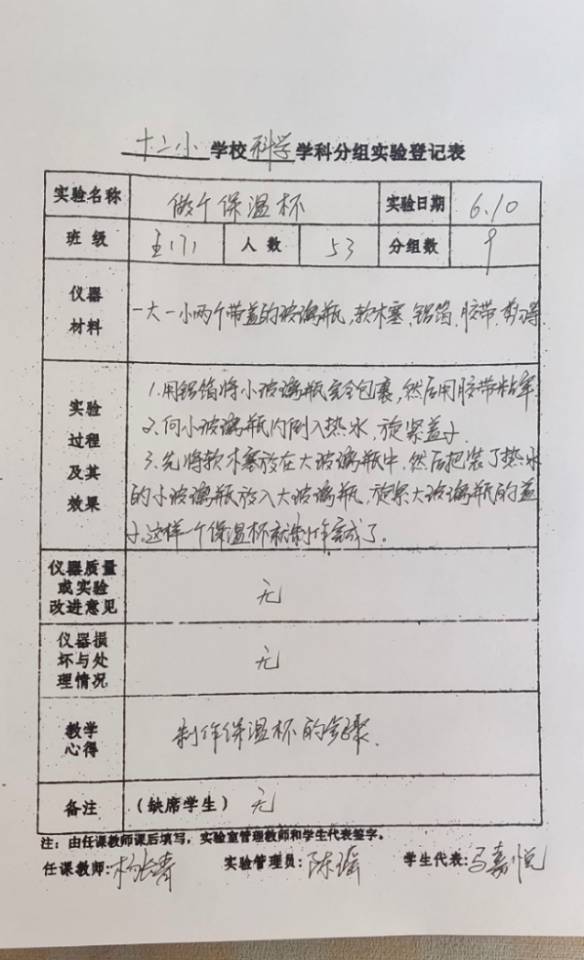 十二小学校科学学科分组实验登记表
实验名称 做个保温杯 实验日期 6.10
班级 五(7) 人数 53 分组数 9
仪器
材料
一大一小两个带盖的玻璃瓶,软木塞,铝箔,胶带,剪刀等
实验
过程
及其
效果
1.用铝箔将小玻璃瓶完全包裹,然后用胶带粘牢
2.向小玻璃瓶内倒入热水,旋紧盖子.
3.先将软木塞放在大玻璃瓶中,然后把装了热水
的小玻璃瓶放入大玻璃瓶,旋紧大玻璃瓶的盖
子.这样一个保温杯就制作完成了.
仪器质量
或实验
改进意见
无
仪器损
坏与处
理情况
无
教学
心得
制作保温杯的步骤.
备注 (缺席学生) 无
注:由任课教师课后填写,实验室管理教师和学生代表签字。
任课教师:杨长青 实验管理员:陈瑶 学生代表:马嘉悦